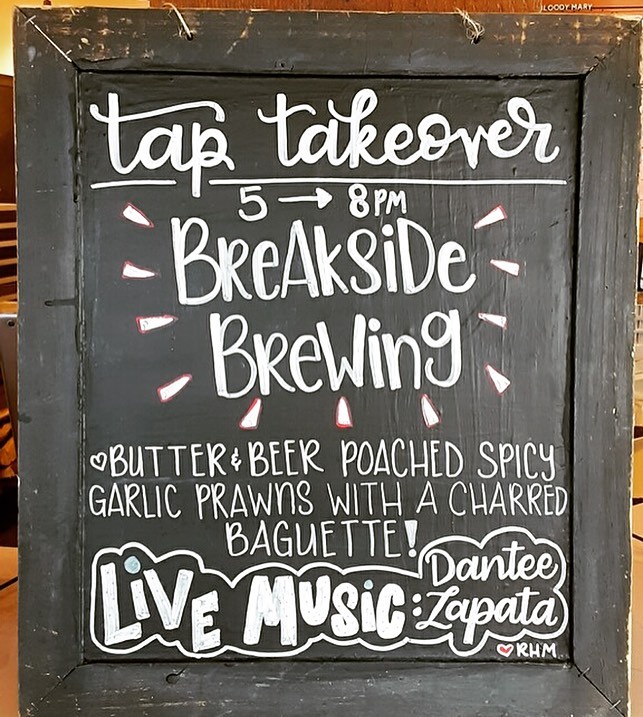 LOODY MARY
tap takeover
5 → 8PM
BreAksiDe
BreWing
♡BUTTER & BEER POACHED SPICY
GARLIC PRAWNS WITH A CHARRED
BAGUETTE!
LiVE MUSiC: Dantee
Zapata
♥RHM